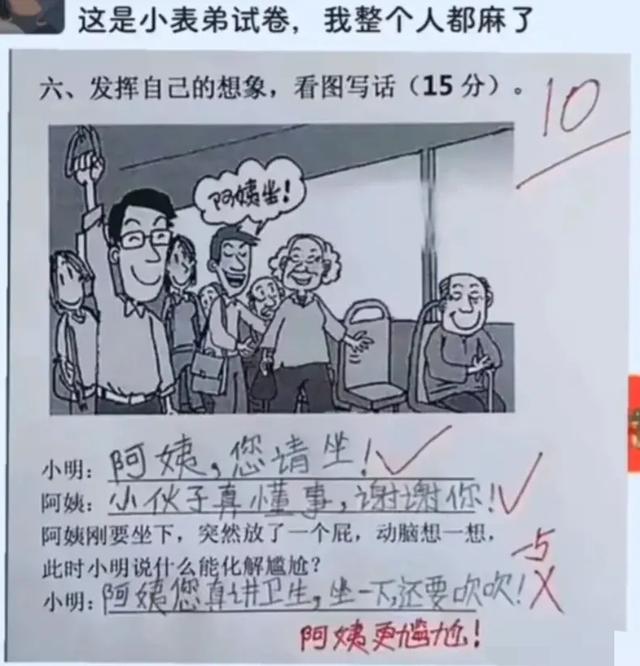 这是小表弟试卷，我整个人都麻了
六、发挥自己的想象，看图写话（15分）。
10
阿姨坐！
小明：阿姨，您请坐！
阿姨：小伙子真懂事，谢谢你！
阿姨刚要坐下，突然放了一个屁，动脑想一想，
-5
此时小明说什么能化解尴尬？
小明：阿姨您真讲卫生，坐一下，还要吹吹！
阿姨更尴尬！